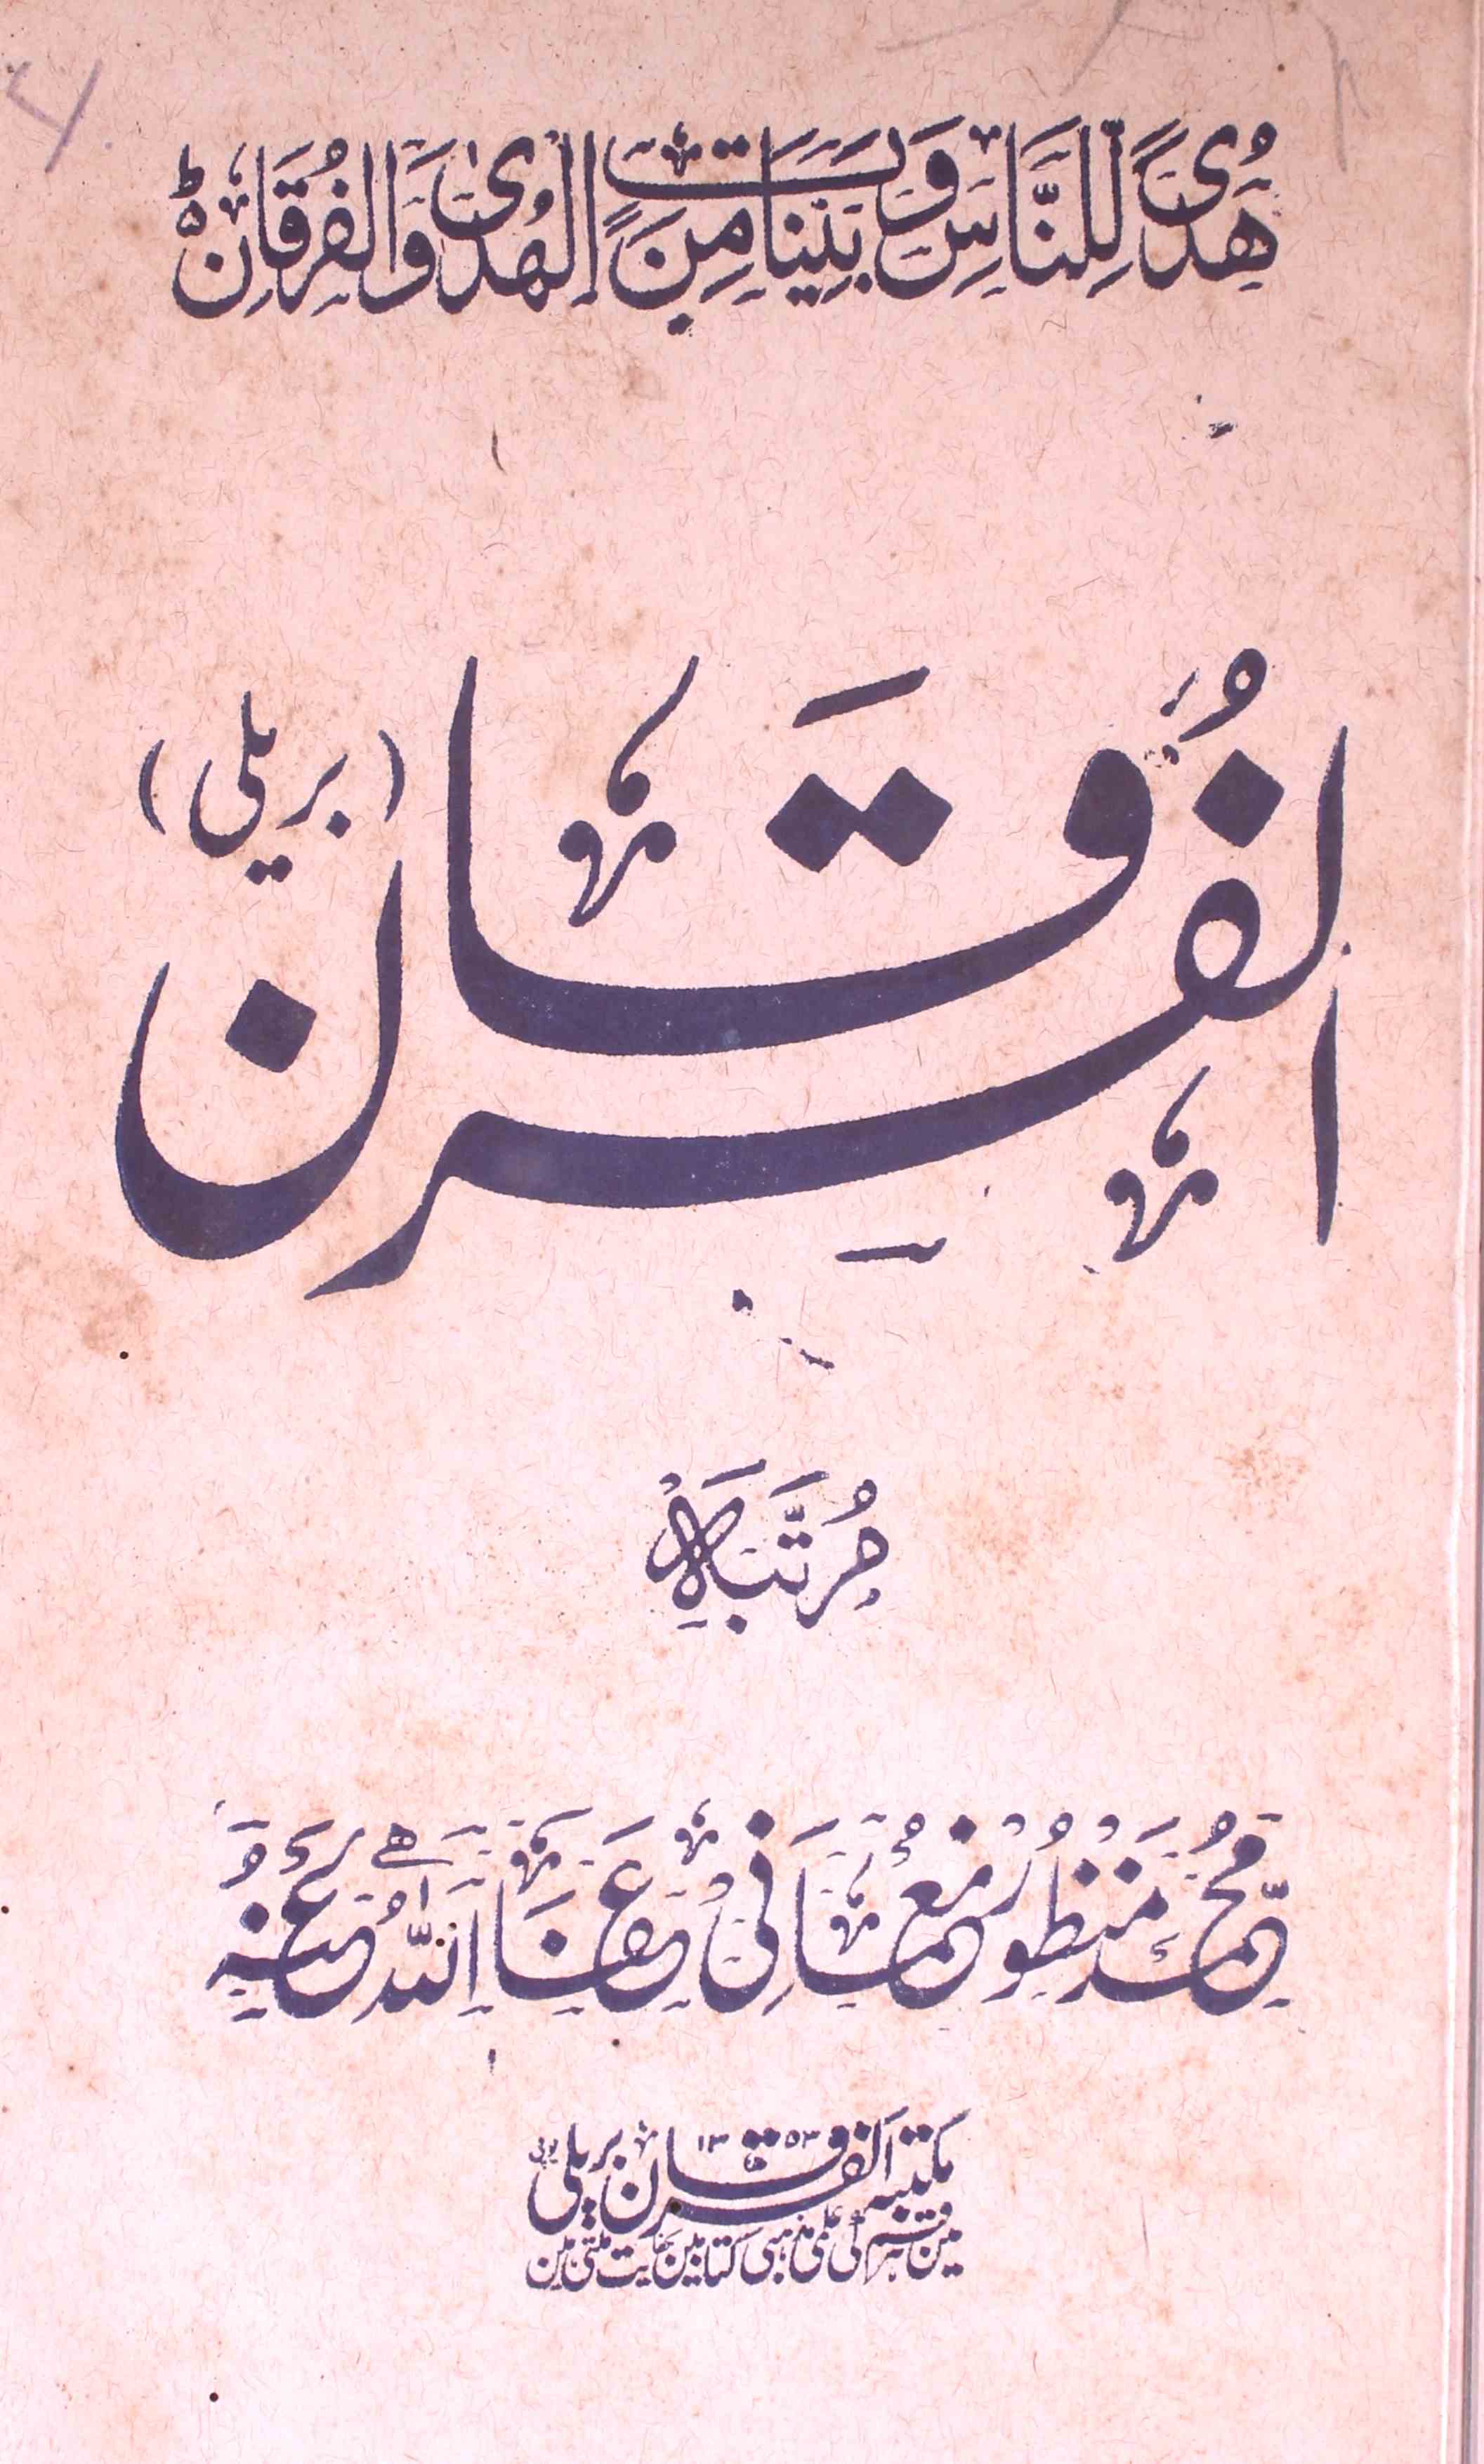 هُدًى لِّلنَّاسِ وَبَيِّنَاتٍ مِنَ الْهُدٰى وَالْفُرْقَانِ ط
الفُرقان (بریلی)
مُرَتَّبَہ
مُحَمَّد مَنظُور نُعمَانِی عَفَا اللّٰهُ عَنْہُ
مکتبہ الفرقان بریلی ۱۳۵۳
میں ہر قسم کی علمی مذہبی کتابیں بکفایت ملتی ہیں